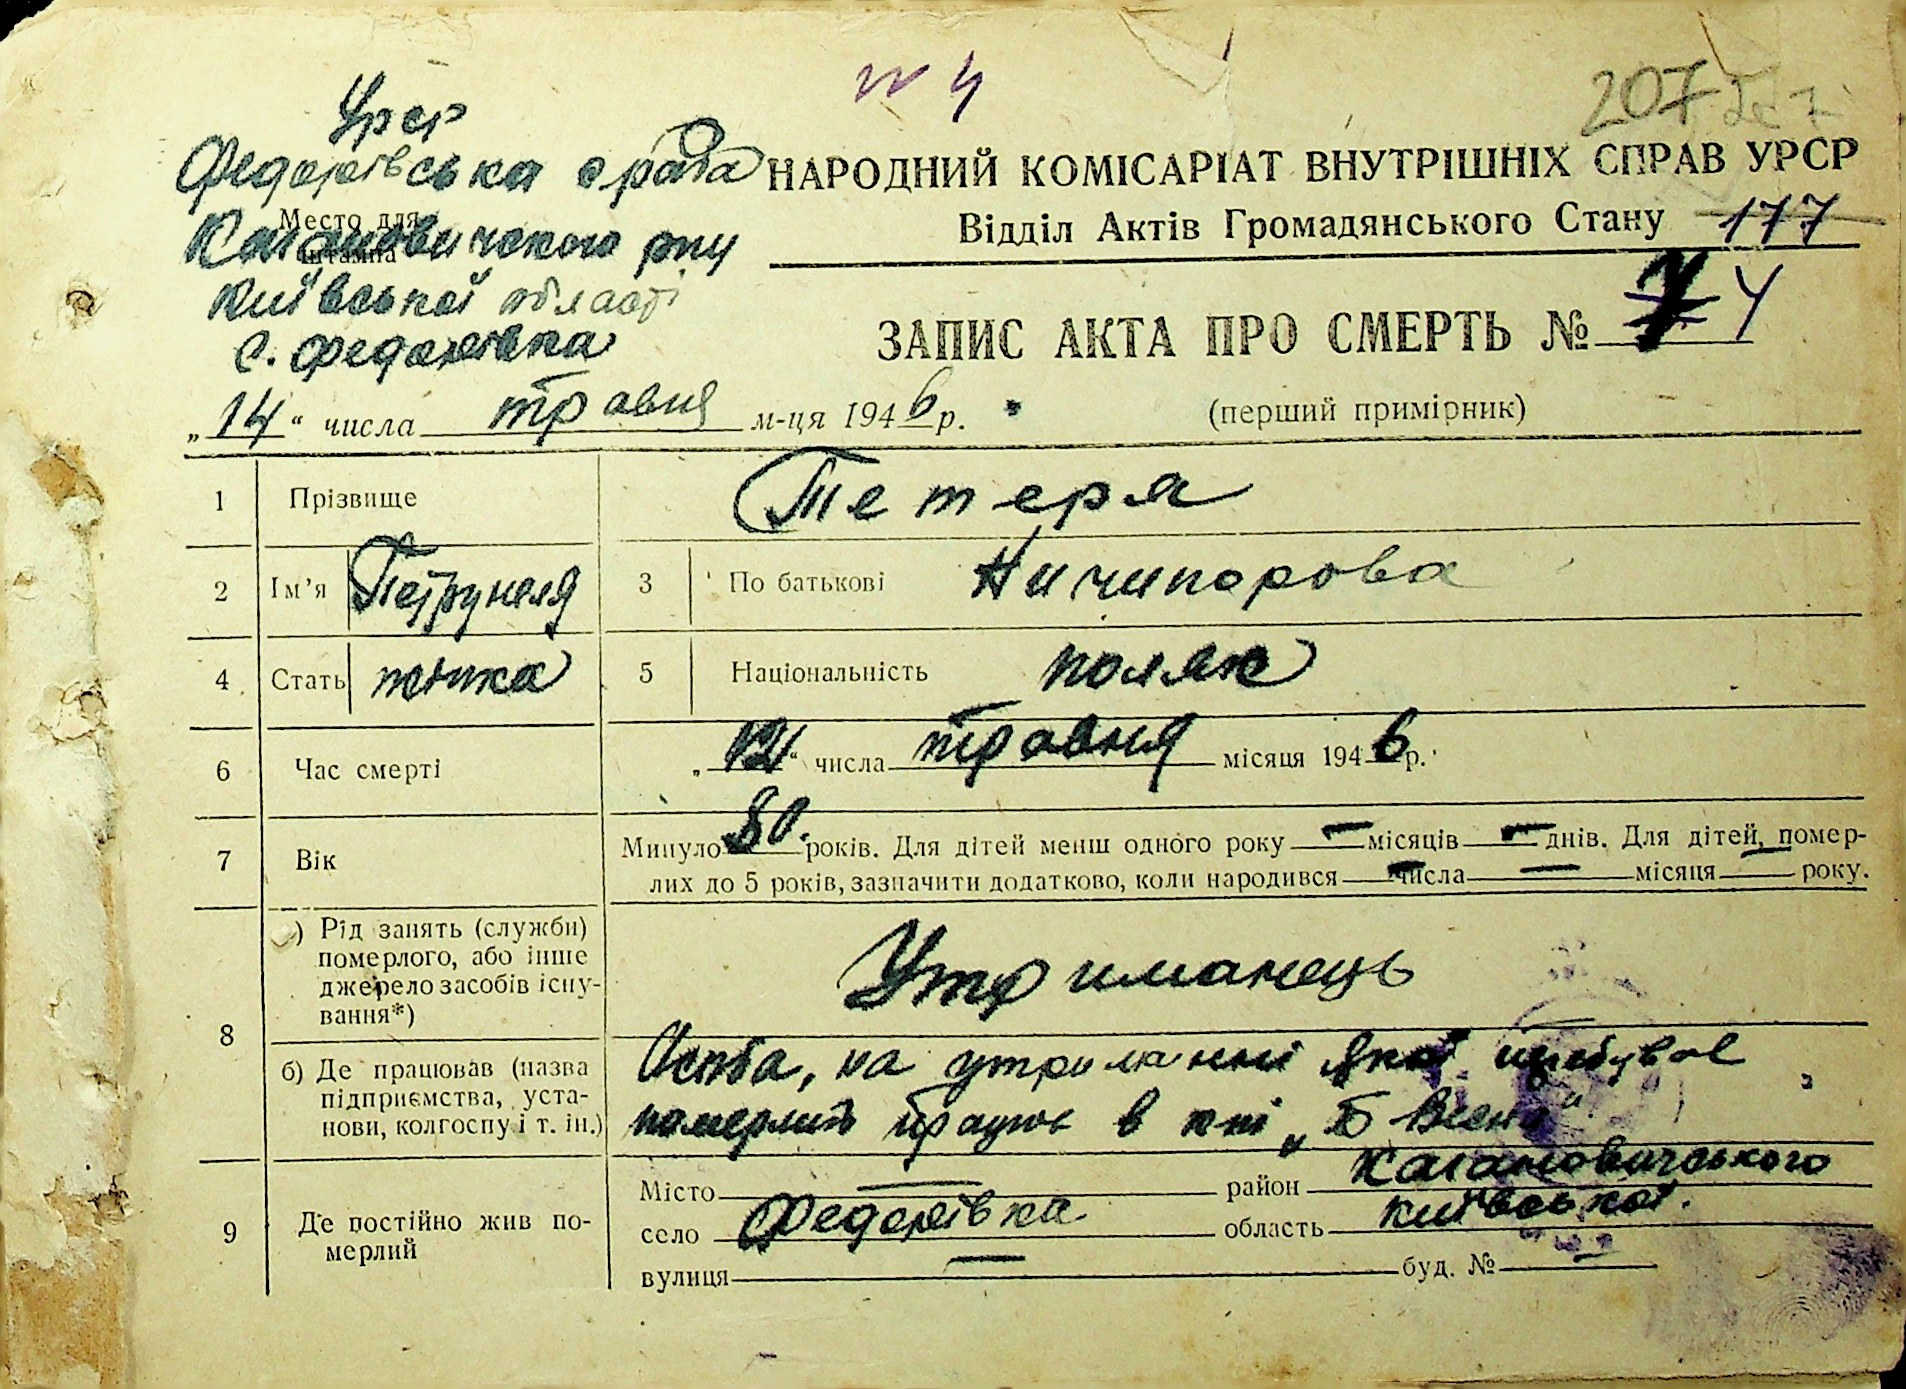 № 4
207
УРСР
Федорівська с рада
Кагановичского р-ну
Київської області
с. Федорівка
Место для штампа
НАРОДНИЙ КОМІСАРІАТ ВНУТРІШНІХ СПРАВ УРСР
Відділ Актів Громадянського Стану 177
ЗАПИС АКТА ПРО СМЕРТЬ № 4
„14“ числа травня м-ця 1946 р.
(перший примірник)
1 Прізвище Тетеря
2 Ім’я Петрунеля 3 По батькові Ничипорова
4 Стать жінка 5 Національність поляк
6 Час смерті „12“ числа травня місяця 1946 р.
7 Вік Минуло 80 років. Для дітей менш одного року — місяців — днів. Для дітей, помер-
лих до 5 років, зазначити додатково, коли народився — числа — місяця — року.
8 ) Рід занять (служби)
померлого, або інше
джерело засобів існу-
вання*)
Утриманець
б) Де працював (назва
підприємства, уста-
нови, колгоспу і т. ін.)
Особа, на утриманні якої перебував
померлий працює в к-пі „
9 Де постійно жив по-
мерлий
Місто — район Кагановичського
село Федорівка область Київської.
вулиця — буд. № —